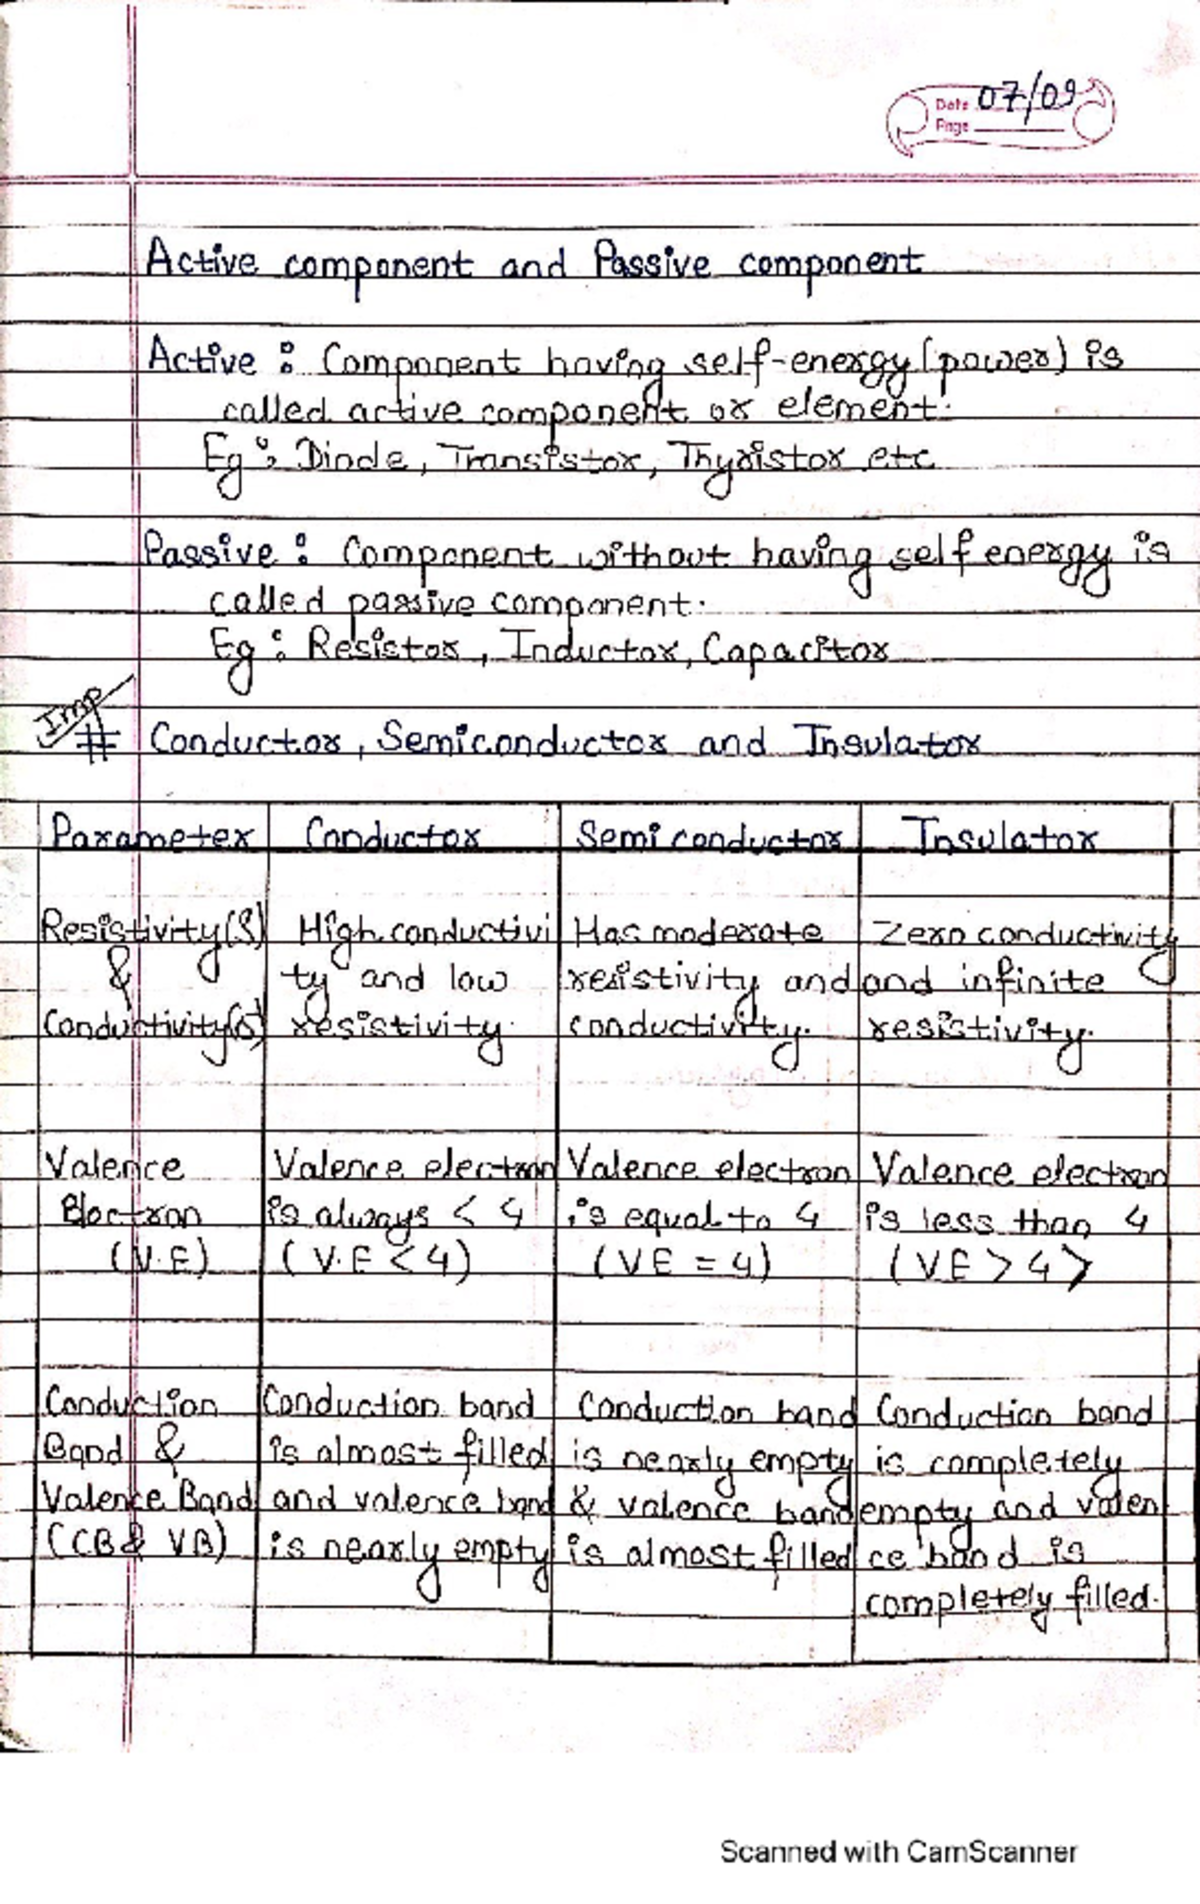 Date 07/09
Page
Active component and Passive component
Active : Component having self-energy (power) is
called active component or element.
Eg : Diode, Transistor, Thyristor etc
Passive : Component without having self energy is
called passive component.
Eg : Resistor, Inductor, Capacitor
Imp
# Conductor, Semiconductor and Insulator
Parameter Conductor Semiconductor Insulator
Resistivity(S) High conductivi Has moderate Zero conductivity
& ty and low resistivity and and infinite
Conductivity(σ) resistivity. conductivity. resistivity.
Valence Valence electron Valence electron Valence electron
Electron is always < 4 is equal to 4 is less than 4
(V.E) (V.E < 4) (VE = 4) (VE > 4)
Conduction Conduction band Conduction band Conduction band
Band & is almost filled is nearly empty is completely
Valence Band and valence band & valence band empty and valen
(CB & VB) is nearly empty is almost filled ce band is
completely filled.
Scanned with CamScanner